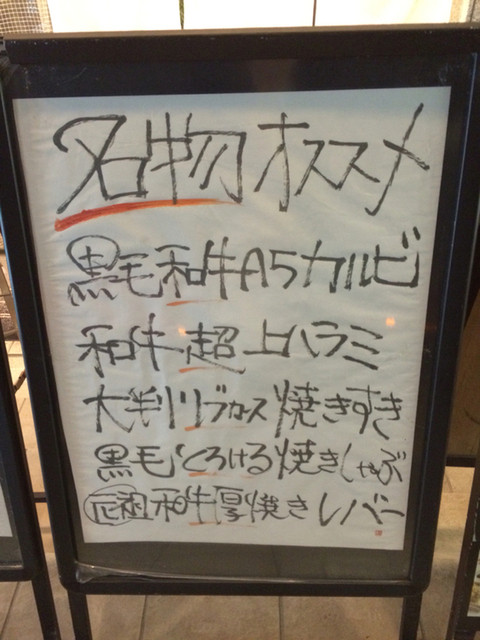 名物オススメ
黒毛和牛A5カルビ
和牛超上ハラミ
大判リブロース焼きすき
黒毛とろける焼きしゃぶ
元祖和牛厚焼きレバー